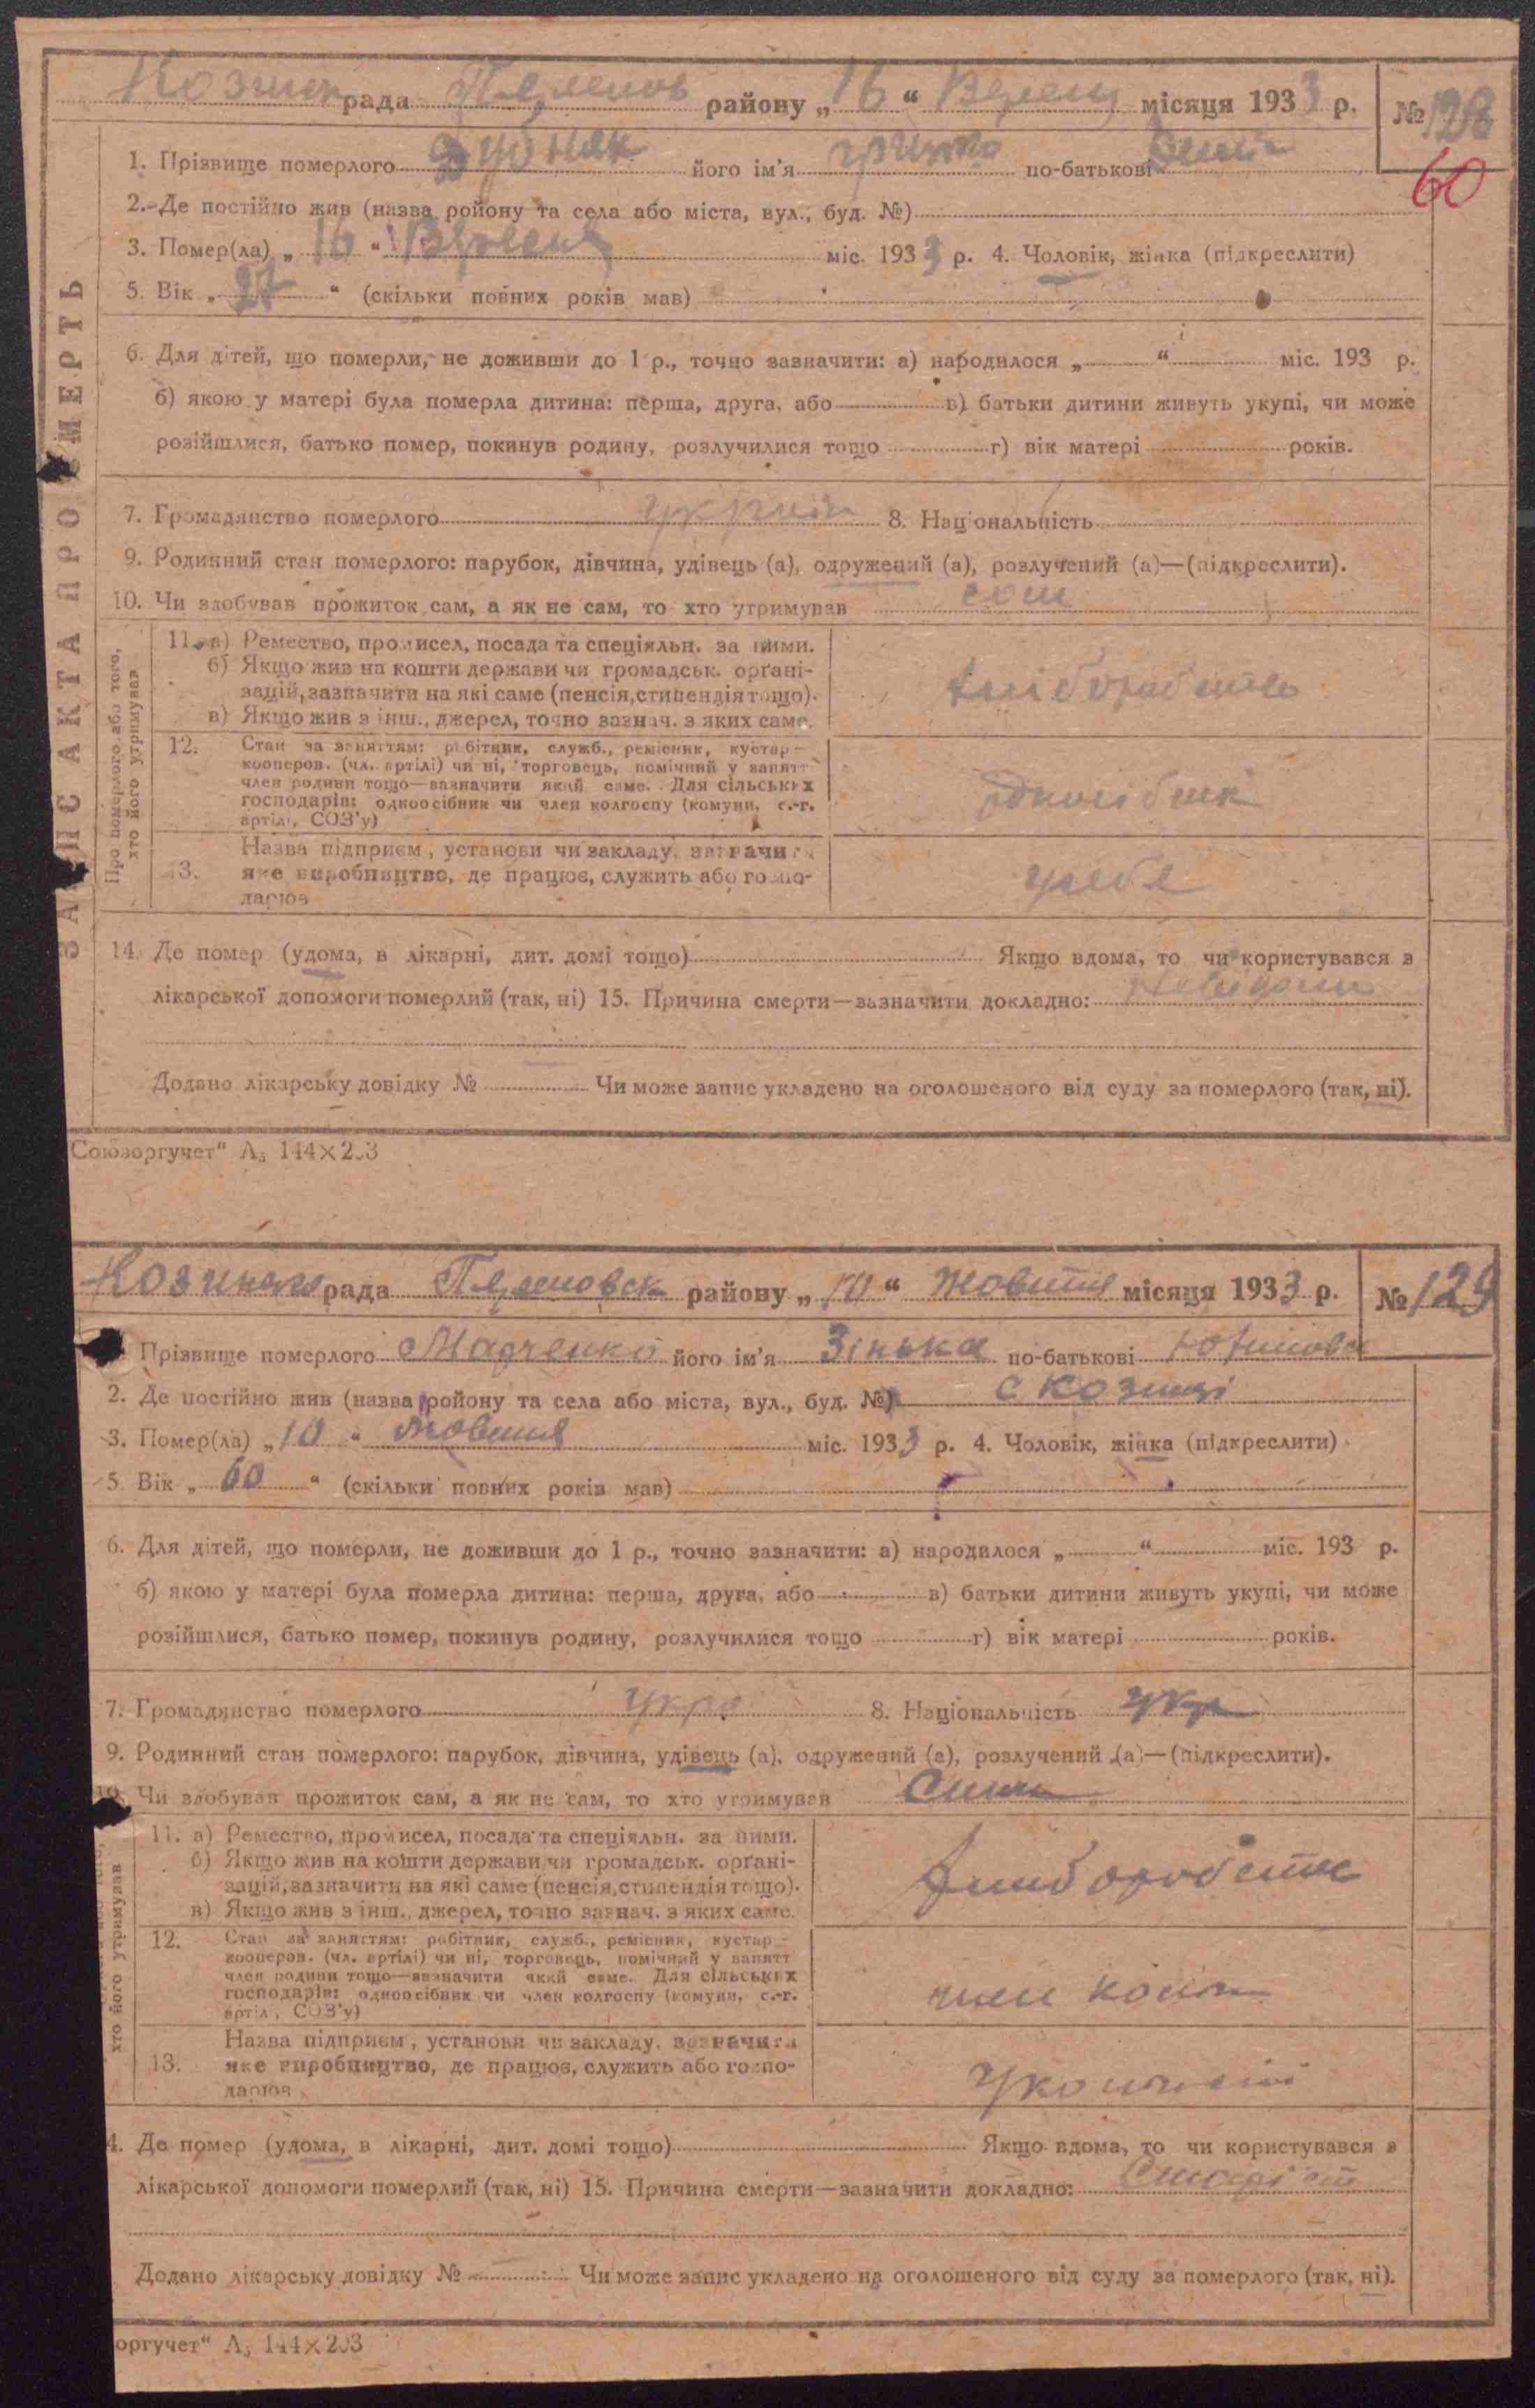 рада району „16“ місяця 1933 р. № 128
60
1. Прізвище померлого його ім'я по-батькові
2. Де постійно жив (назва ройону та села або міста, вул., буд. №)
3. Помер(ла) „16“ Вересня міс. 1933 р. 4. Чоловік, жінка (підкреслити)
5. Вік „27“ (скільки повних років мав)
6. Для дітей, що померли, не доживши до 1 р., точно зазначити: а) народилося „ “ міс. 193 р.
б) якою у матері була померла дитина: перша, друга, або в) батьки дитини живуть укупі, чи може
розійшлися, батько помер, покинув родину, розлучилися тощо г) вік матері років.
7. Громадянство померлого 8. Національність
9. Родинний стан померлого: парубок, дівчина, удівець (а), одружений (а), розлучений (а)—(підкреслити).
10. Чи здобував прожиток сам, а як не сам, то хто утримував сам
ЗАПИС АКТА ПРО СМЕРТЬ
Про померлого або того,
хто його утримував
11. а) Ремество, промисел, посада та спеціяльн. за ними.
б) Якщо жив на кошти держави чи громадськ. орґані-
зацій, зазначити на які саме (пенсія, стипендія тощо).
в) Якщо жив з інш., джерел, точно зазнач. з яких саме.
хліборобство
12. Стан за заняттям: робітник, служб., ремісник, кустар-
кооперов. (чл. артілі) чи ні, торговець, помічний у занятт
член родини тощо—зазначити який саме. Для сільських
господарів: одноосібник чи член колгоспу (комуни, с.-г.
артілі, СОЗ'у)
одноосібник
13. Назва підприєм, установи чи закладу, зазначити
яке виробництво, де працює, служить або госпо-
дарює
у себе
14. Де помер (удома, в лікарні, дит. домі тощо) Якщо вдома, то чи користувався з
лікарської допомоги померлий (так, ні) 15. Причина смерти—зазначити докладно:
Додано лікарську довідку № Чи може запис укладено на оголошеного від суду за померлого (так, ні).
Союзоргучет“ А₅ 144×203
рада району „10“ Жовтня місяця 1933 р. № 129
Прізвище померлого його ім'я Зінька по-батькові
2. Де постійно жив (назва ройону та села або міста, вул., буд. №) с Козинці
3. Помер(ла) „10“ Жовтня міс. 1933 р. 4. Чоловік, жінка (підкреслити)
5. Вік „60“ (скільки повних років мав)
6. Для дітей, що померли, не доживши до 1 р., точно зазначити: а) народилося „ “ міс. 193 р.
б) якою у матері була померла дитина: перша, друга, або в) батьки дитини живуть укупі, чи може
розійшлися, батько помер, покинув родину, розлучилися тощо г) вік матері років.
7. Громадянство померлого 8. Національність укр
9. Родинний стан померлого: парубок, дівчина, удівець (а), одружений (а), розлучений (а)—(підкреслити).
10. Чи здобував прожиток сам, а як не сам, то хто утримував
хто його утримував
11. а) Ремество, промисел, посада та спеціяльн. за ними.
б) Якщо жив на кошти держави чи громадськ. орґані-
зацій, зазначити на які саме (пенсія, стипендія тощо).
в) Якщо жив з інш., джерел, точно зазнач. з яких саме.
12. Стан за заняттям: робітник, служб., ремісник, кустар-
кооперов. (чл. артілі) чи ні, торговець, помічний у занятт
член родини тощо—зазначити який саме. Для сільських
господарів: одноосібник чи член колгоспу (комуни, с.-г.
артіл, СОЗ'у)
член
13. Назва підприєм, установи чи закладу, зазначити
яке виробництво, де працює, служить або госпо-
дарює
4. Де помер (удома, в лікарні, дит. домі тощо) Якщо вдома, то чи користувався з
лікарської допомоги померлий (так, ні) 15. Причина смерти—зазначити докладно:
Додано лікарську довідку № Чи може запис укладено на оголошеного від суду за померлого (так, ні).
оргучет“ А₅ 144×203